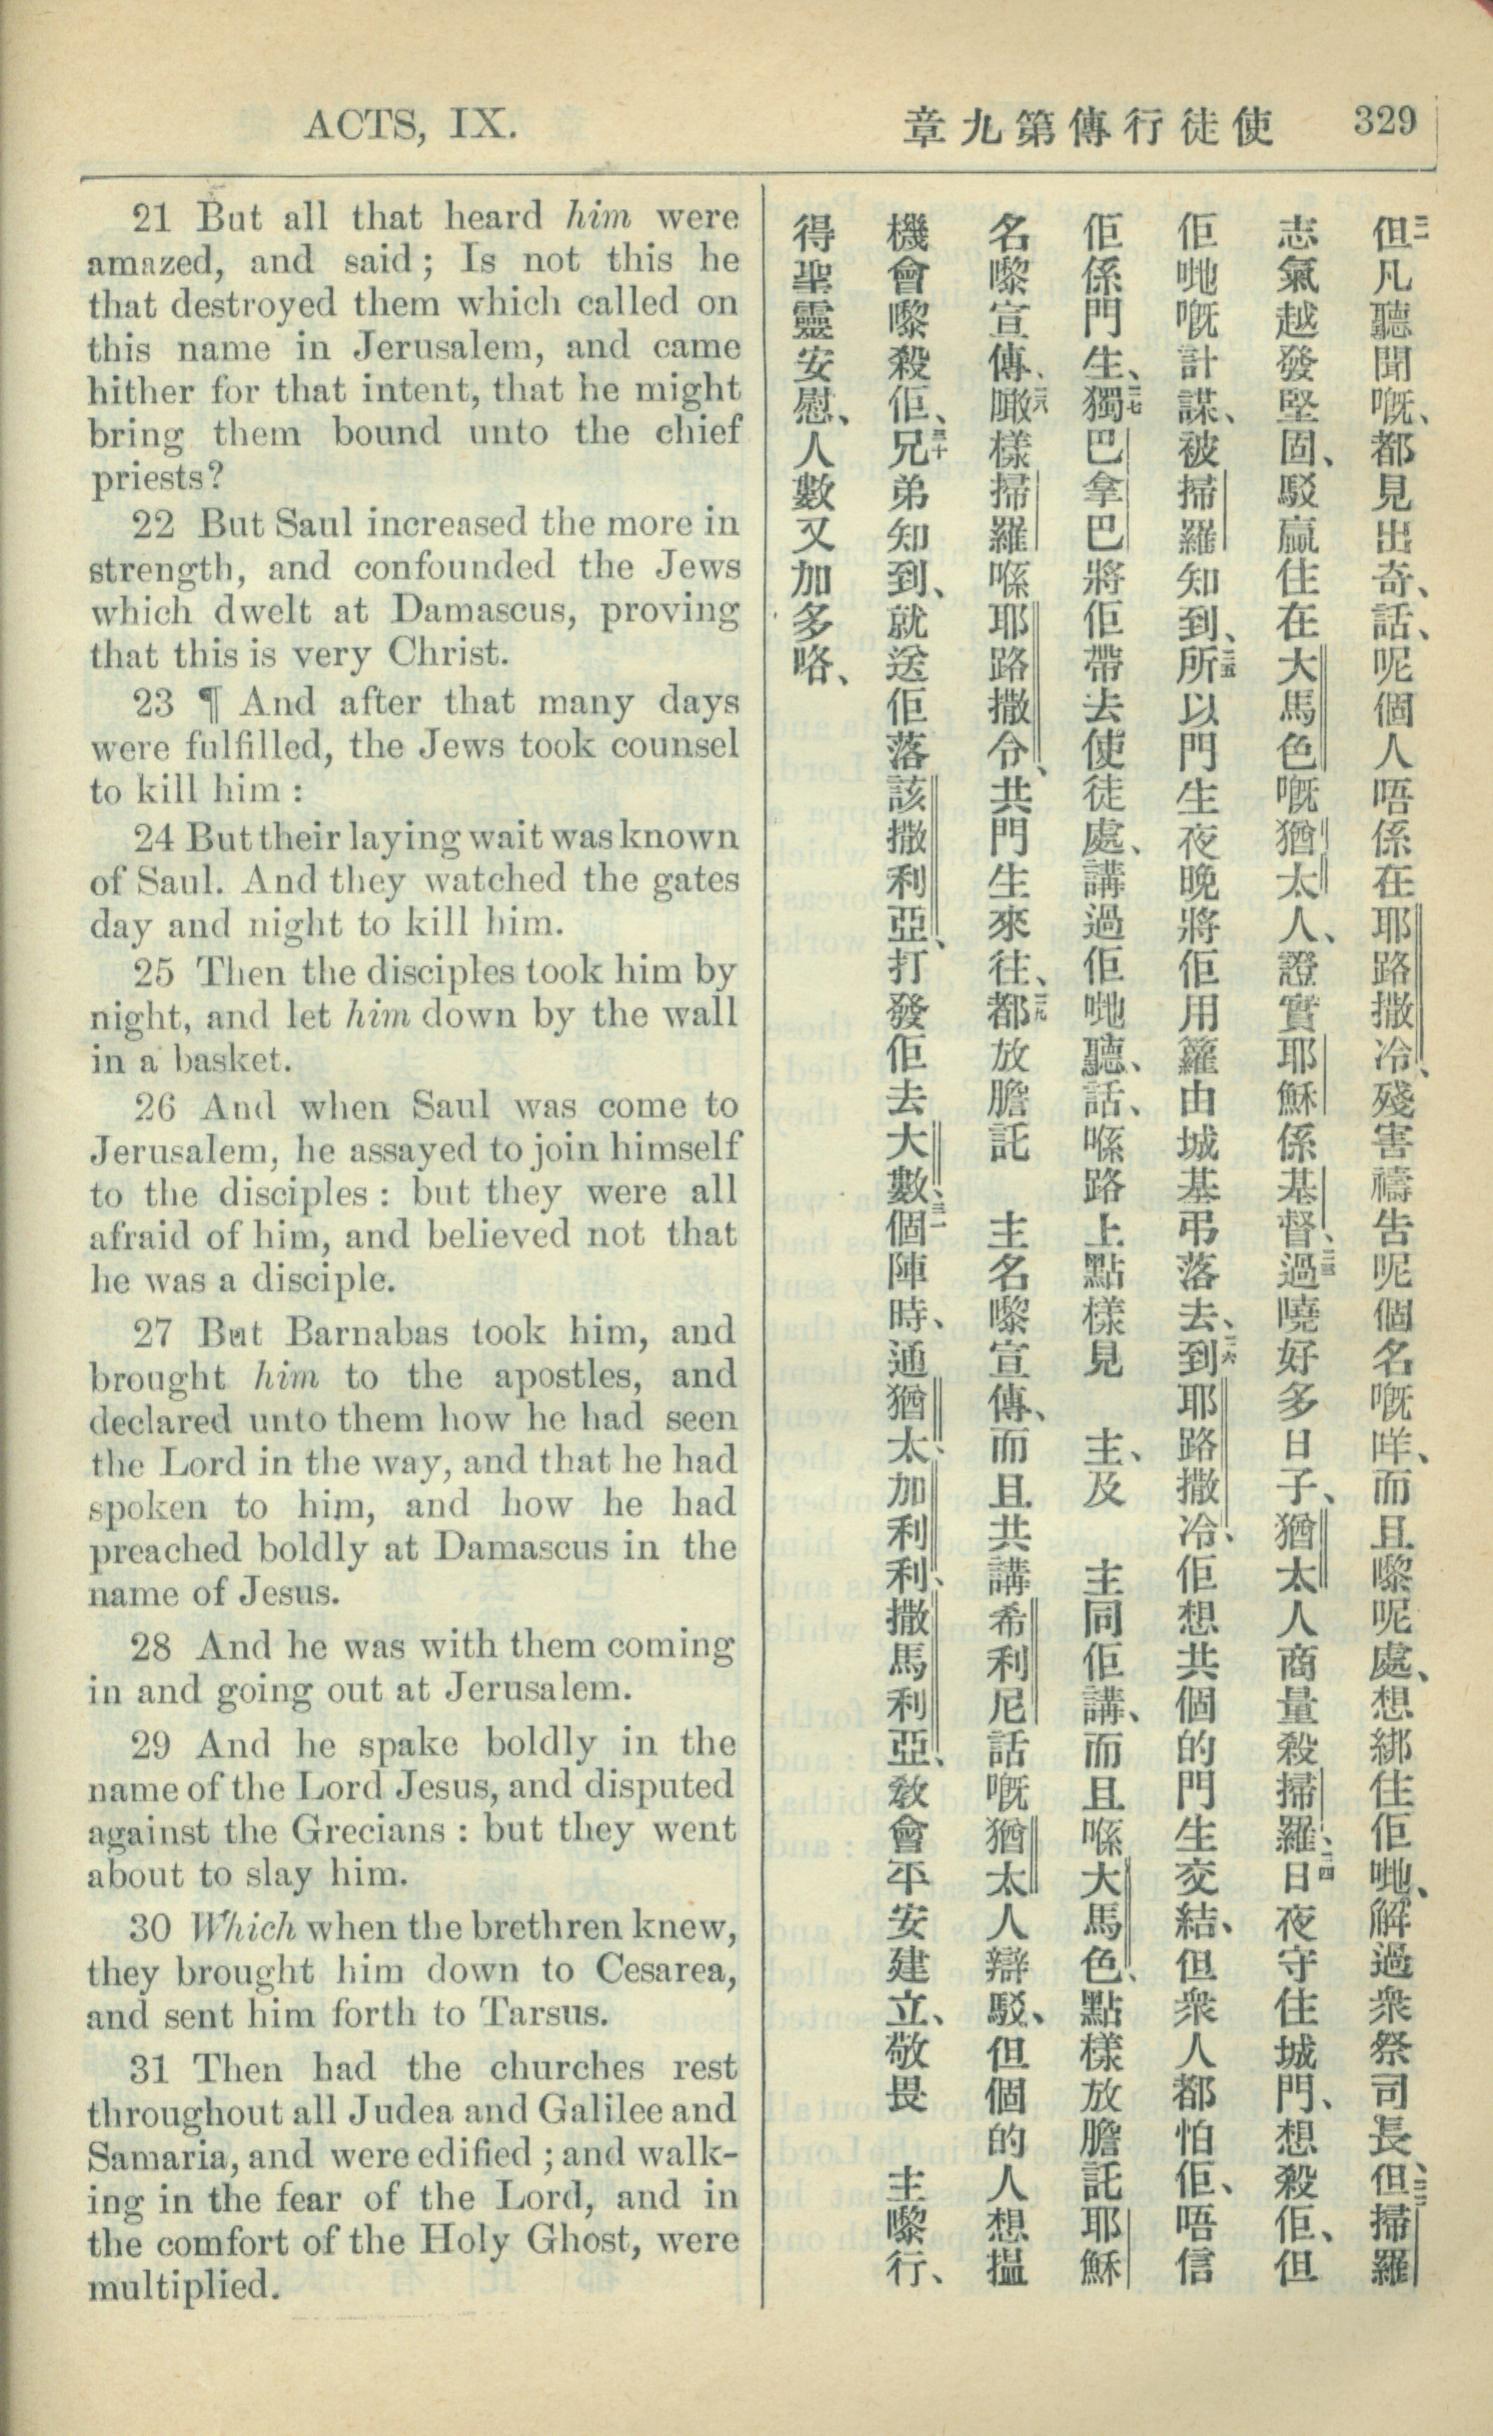 ACTS, IX.
使徒行傳第九章 329
21 But all that heard him were
amazed, and said; Is not this he
that destroyed them which called on
this name in Jerusalem, and came
hither for that intent, that he might
bring them bound unto the chief
priests?
22 But Saul increased the more in
strength, and confounded the Jews
which dwelt at Damascus, proving
that this is very Christ.
23 ¶ And after that many days
were fulfilled, the Jews took counsel
to kill him :
24 But their laying wait was known
of Saul. And they watched the gates
day and night to kill him.
25 Then the disciples took him by
night, and let him down by the wall
in a basket.
26 And when Saul was come to
Jerusalem, he assayed to join himself
to the disciples : but they were all
afraid of him, and believed not that
he was a disciple.
27 But Barnabas took him, and
brought him to the apostles, and
declared unto them how he had seen
the Lord in the way, and that he had
spoken to him, and how he had
preached boldly at Damascus in the
name of Jesus.
28 And he was with them coming
in and going out at Jerusalem.
29 And he spake boldly in the
name of the Lord Jesus, and disputed
against the Grecians : but they went
about to slay him.
30 Which when the brethren knew,
they brought him down to Cesarea,
and sent him forth to Tarsus.
31 Then had the churches rest
throughout all Judea and Galilee and
Samaria, and were edified ; and walk-
ing in the fear of the Lord, and in
the comfort of the Holy Ghost, were
multiplied.
二一但凡聽聞嘅、都見出奇、話、呢個人唔係在耶路撒冷、殘害禱告呢個名嘅咩、而且嚟呢處、想綁住佢哋、解過衆祭司長、二二但掃羅
志氣越發堅固、駁贏住在大馬色嘅猶太人、證實耶穌係基督、二三過曉好多日子、猶太人商量殺掃羅、二四日夜守住城門、想殺佢、但
佢哋嘅計謀、被掃羅知到、二五所以門生夜晚將佢用籮由城基弔落去、二六到耶路撒冷、佢想共個的門生交結、但衆人都怕佢、唔信
佢係門生、二七獨巴拿巴將佢帶去使徒處、講過佢哋聽、話、喺路上點樣見 主、及 主同佢講、而且喺大馬色、點樣放膽託耶穌
名嚟宣傳、二八噉樣掃羅喺耶路撒冷、共門生來往、二九都放膽託 主名嚟宣傳、而且共講希利尼話嘅猶太人辯駁、但個的人想搵
機會嚟殺佢、三十兄弟知到、就送佢落該撒利亞、打發佢去大數、三一個陣時、通猶太、加利利、撒馬利亞、敎會平安建立、敬畏 主嚟行、
得聖靈安慰、人數又加多咯、